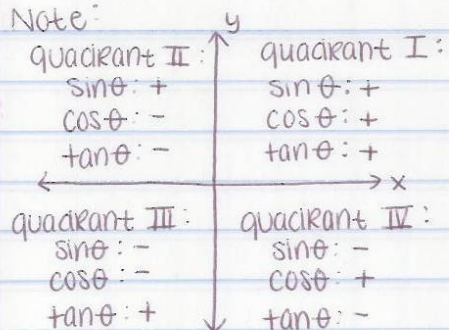 Note:
y
quadrant II:
sinθ: +
cosθ: -
tanθ: -
quadrant I:
sinθ: +
cosθ: +
tanθ: +
x
quadrant III:
sinθ: -
cosθ: -
tanθ: +
quadrant IV:
sinθ: -
cosθ: +
tanθ: -